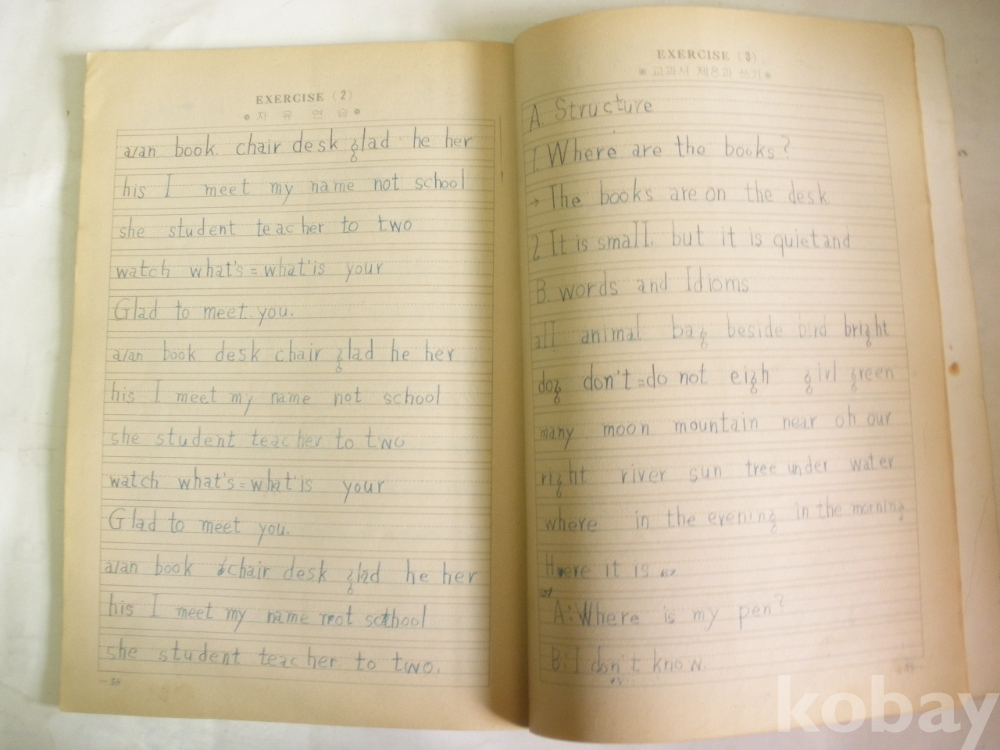 EXERCISE (2)
자 유 연 습
a/an book. chair desk glad he her
his I meet my name not school
she student teacher to two
watch what's = what'is your
Glad to meet you.
a/an book desk chair glad he her
his I meet my name not school
she student teacher to two
watch what's = what'is your
Glad to meet you.
a/an book chair desk glad he her
his I meet my name not school
she student teacher to two.
EXERCISE (3)
교과서 제8과 쓰기
A. Structure
1. Where are the books?
→ The books are on the desk
2. It is small but it is quiet and
B. words and Idioms
all animal bag beside bird bright
dog don't = do not eigh girl green
many moon mountain near oh our
right river sun tree under water
where in the evening in the morning
Here it is
A: Where is my pen?
B: I don't know.
kobay